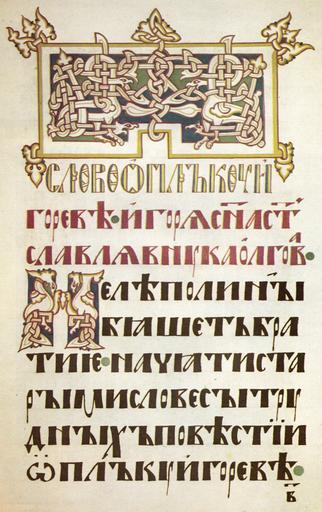 СЛОВОѾПЛЪКОЧИ
ГОРЕВѢ·ИГОРѦСН҃АСТ҃
СЛАВЛѦВНꙊКАОЛГОВА·
НЕЛѢПОЛИНЫ
БꙖШЕТЬБРА
ТИѤ·НАЧѦТИСТА
РЫМИСЛОВЕСЫТРꙊ
ДНЫХЪПОВѢСТІИ
ѾПЛЪКꙊИГОРЕВѢ·
в҃